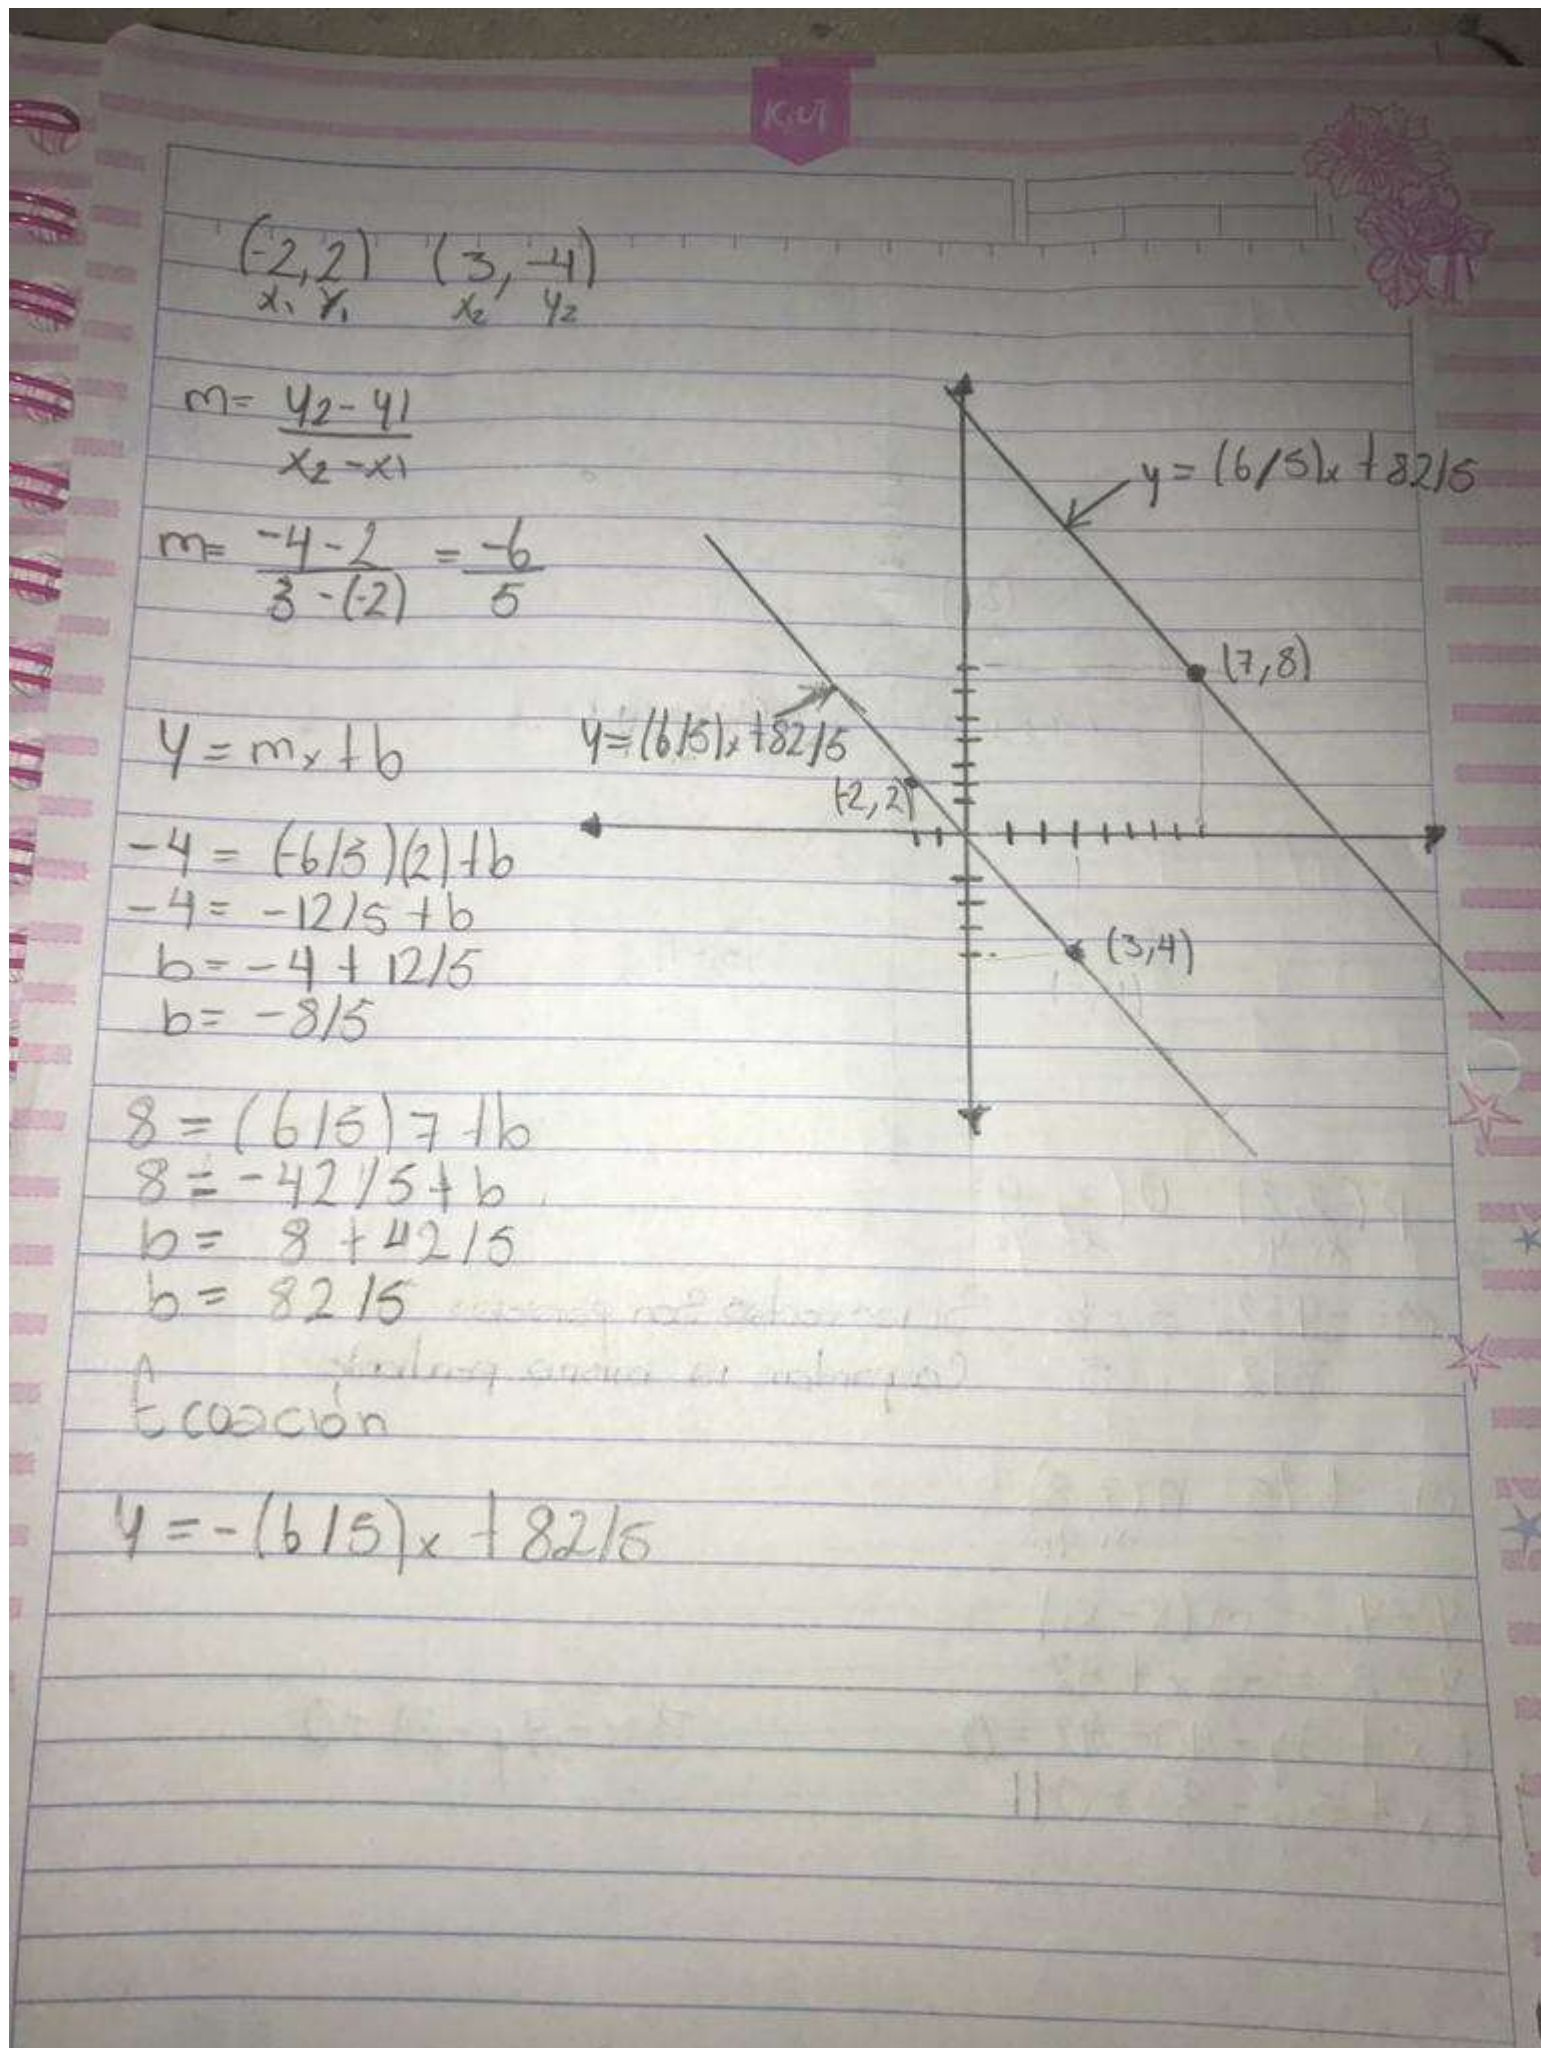 Kut
(-2, 2) (3, -4)
x₁ y₁ x₂ y₂
m= y₂ - y1 / x₂ - x1
m= -4-2 / 3-(-2) = -6 / 5
y = mx + b
-4 = (-6/5)(2)+b
-4 = -12/5 + b
b = -4 + 12/5
b = -8/5
8 = (6/5)7+b
8 = -42/5+b
b = 8 + 42/5
b = 82/5
Ecoación
y = -(6/5)x + 82/5
y = (6/5)x + 82/5
(7,8)
y = (6/5)x + 82/5
(-2, 2)
(3,4)